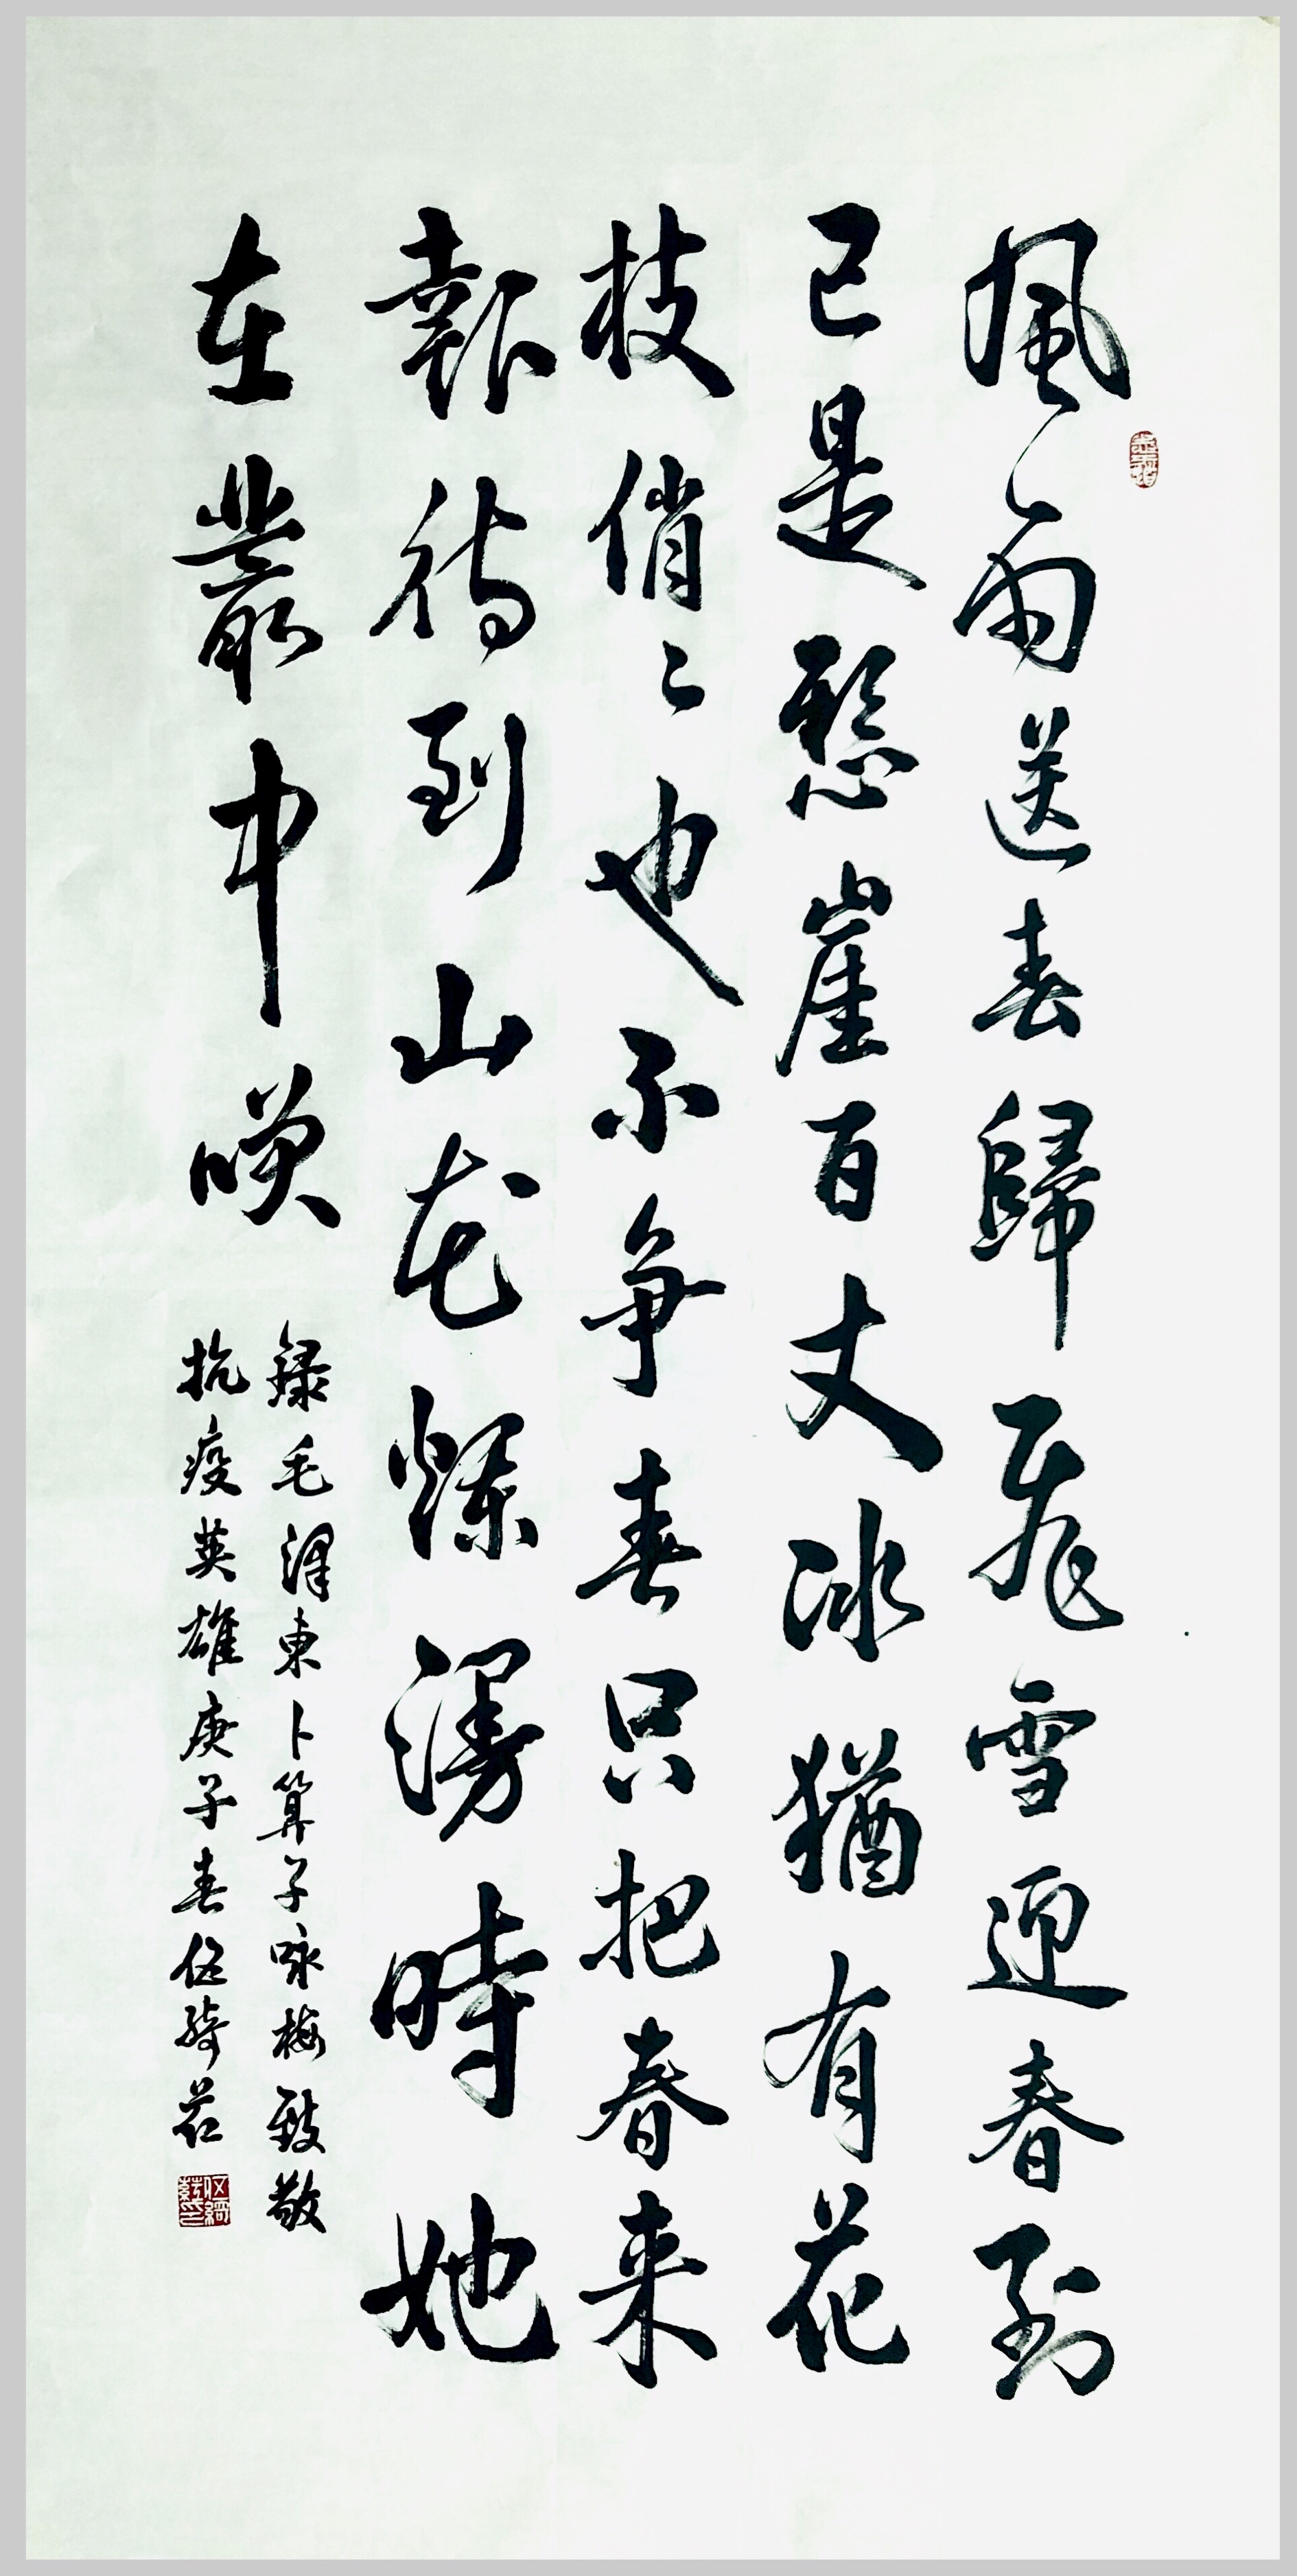 風雨送春歸飛雪迎春到
已是懸崖百丈冰猶有花
枝俏〻也不争春只把春来
報待到山花爛漫時她
在叢中笑
録毛澤東卜算子咏梅致敬
抗疫英雄庚子春伍綺芸